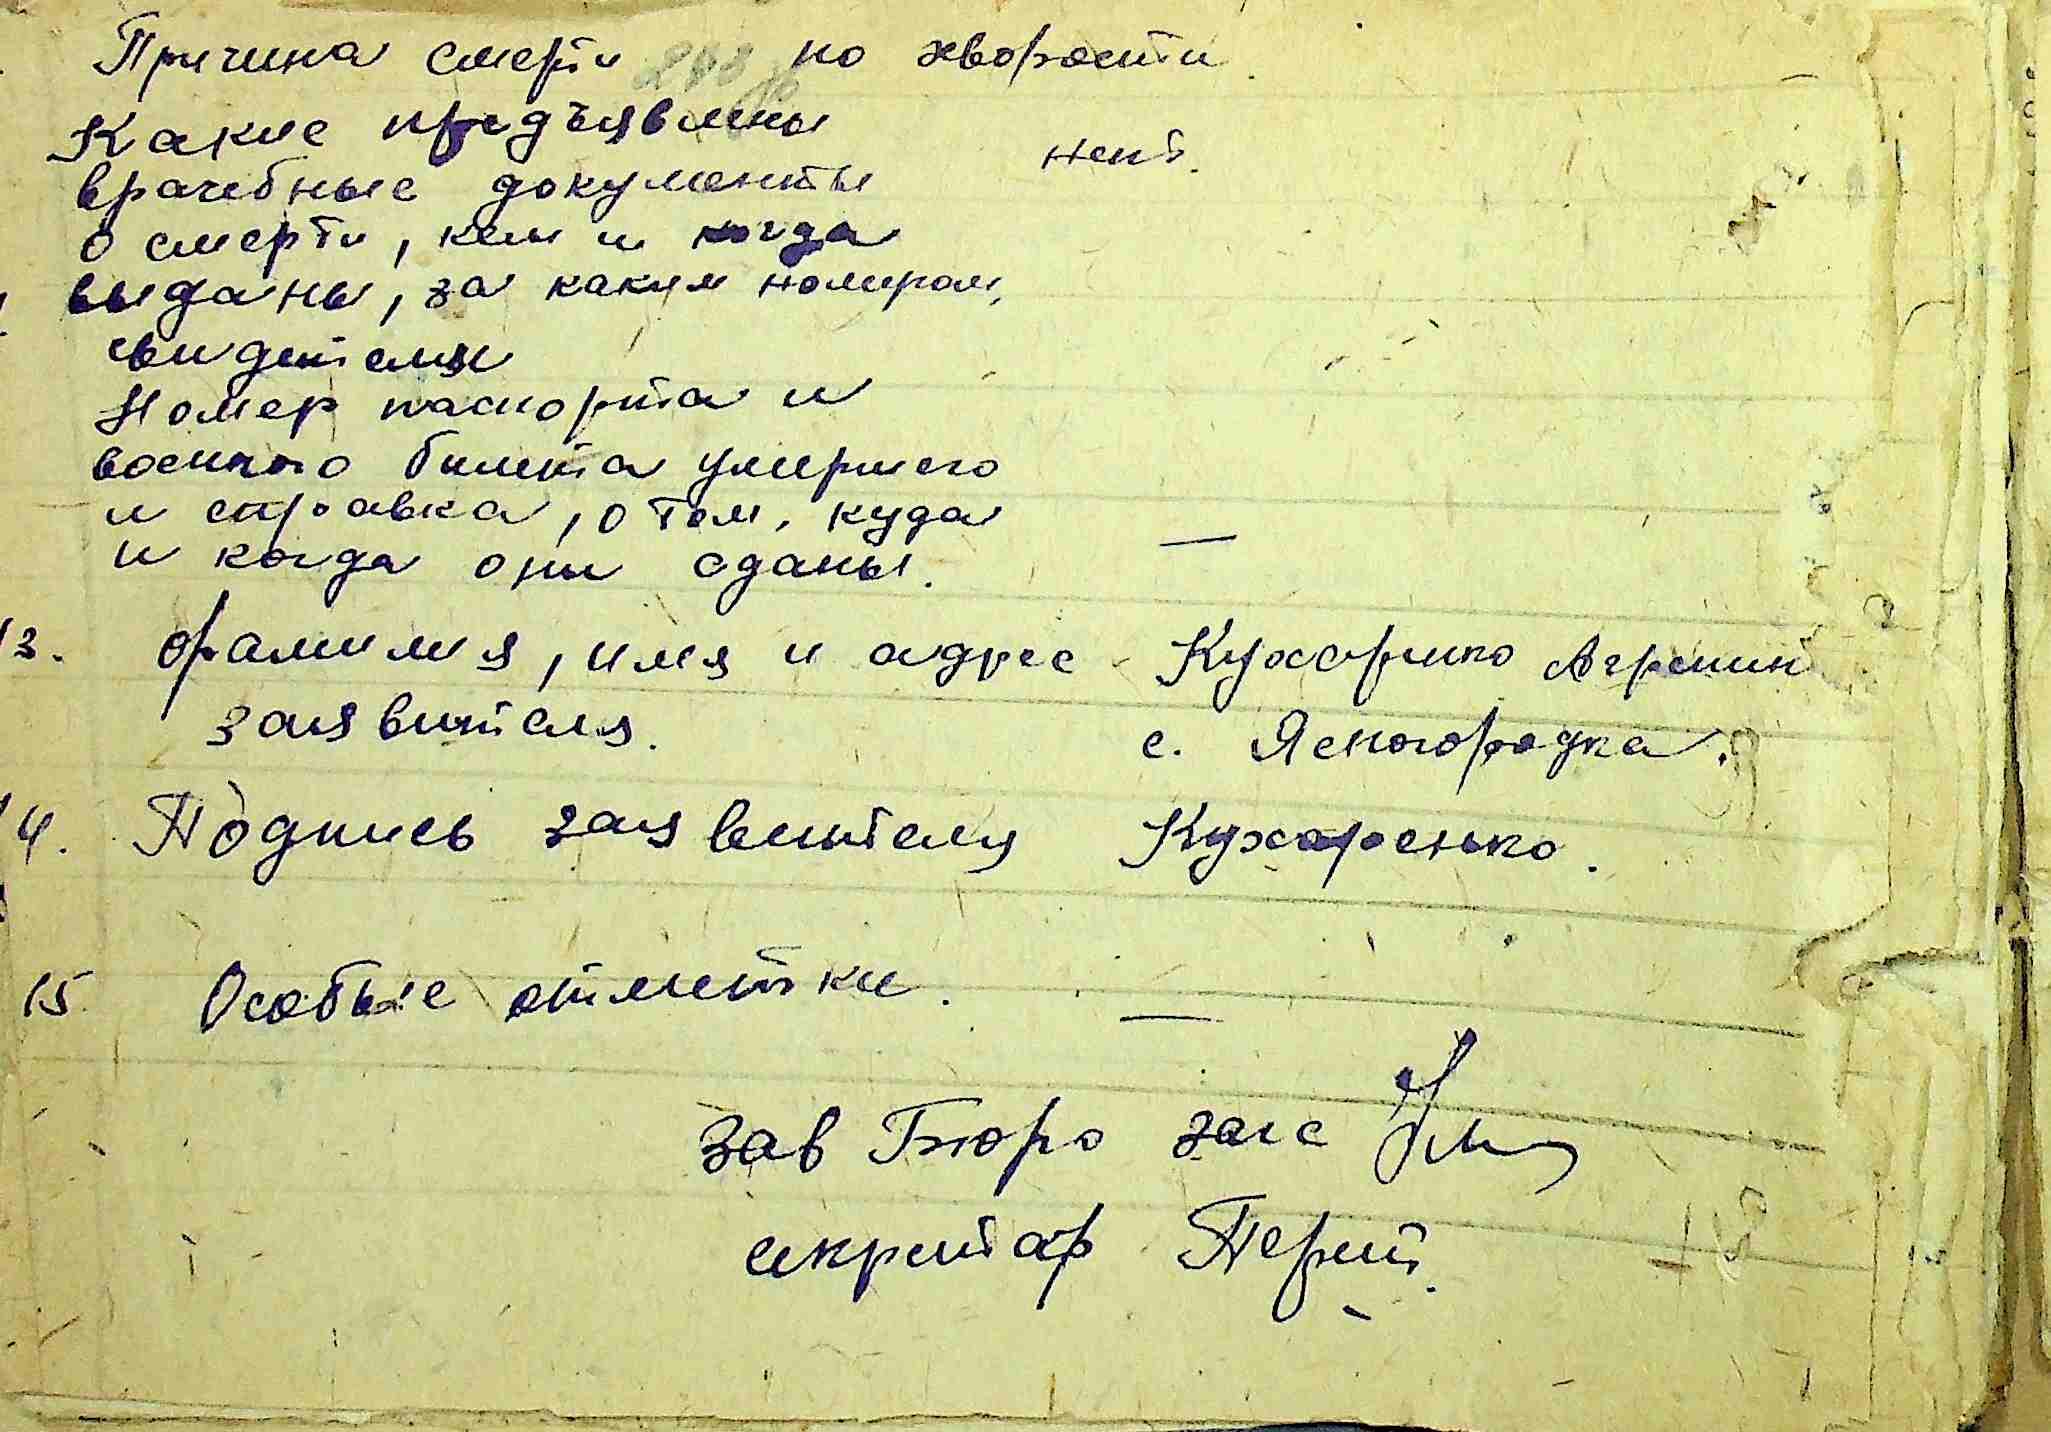 Причина смерти по хворости.
Какие предъявлены
врачебные документы нет.
о смерти, кем и когда
выданы, за каким номером,
свидетели
Номер паспорта и
военного билета умершего
и справка, о том, куда
и когда они сданы. —
13. Фамилия, имя и адрес Кухаренко Агрепин
заявителя. с. Ясногородка.
14. Подпись заявителя Кухаренко.
15. Особые отметки. —
зав Бюро загс
секретар